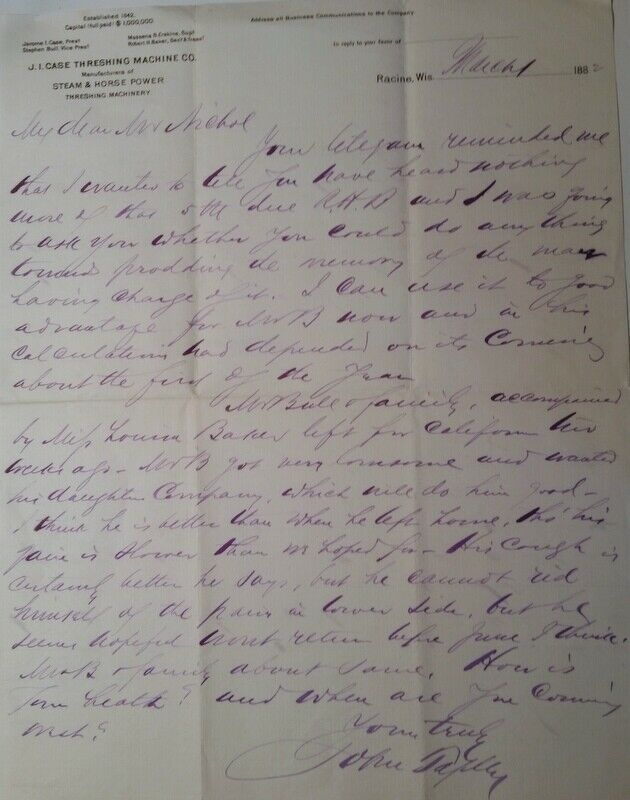 Established 1842.
Capital (full paid) $1,000,000
Address all Business Communications to the Company
Jerome I. Case, Prest
Stephen Bull, Vice Prest
Massena B. Erskine, Supt
Robert H. Baker, Sec'y & Treas'r
In reply to your favor of
J. I. CASE THRESHING MACHINE CO.
Manufacturers of
STEAM & HORSE POWER
THRESHING MACHINERY.
Racine, Wis. March 1 1882
My dear Mr Nichol
Your telegram reminded me
that I wanted to tell you have heard nothing
more of that 5 M due R.H.B and I was going
to ask you whether you could do anything
towards prodding the memory of the man
having charge of it. I can use it to good
advantage for Mr B now and in his
calculations had depended on its coming
about the first of the year
Mr Bull & family, accompanied
by Miss Louisa Baker left for California two
weeks ago - Mr B got very lonesome and wanted
his daughters company, which will do him good -
I think he is better than when he left home, tho' his
gain is slower than we hoped for - His cough is
certainly better he says, but he cannot rid
himself of the pain in lower side, but he
seems hopeful wont return before June I think.
Mrs B & family about same. How is
your health? and when are you coming
west?
Yours truly
John